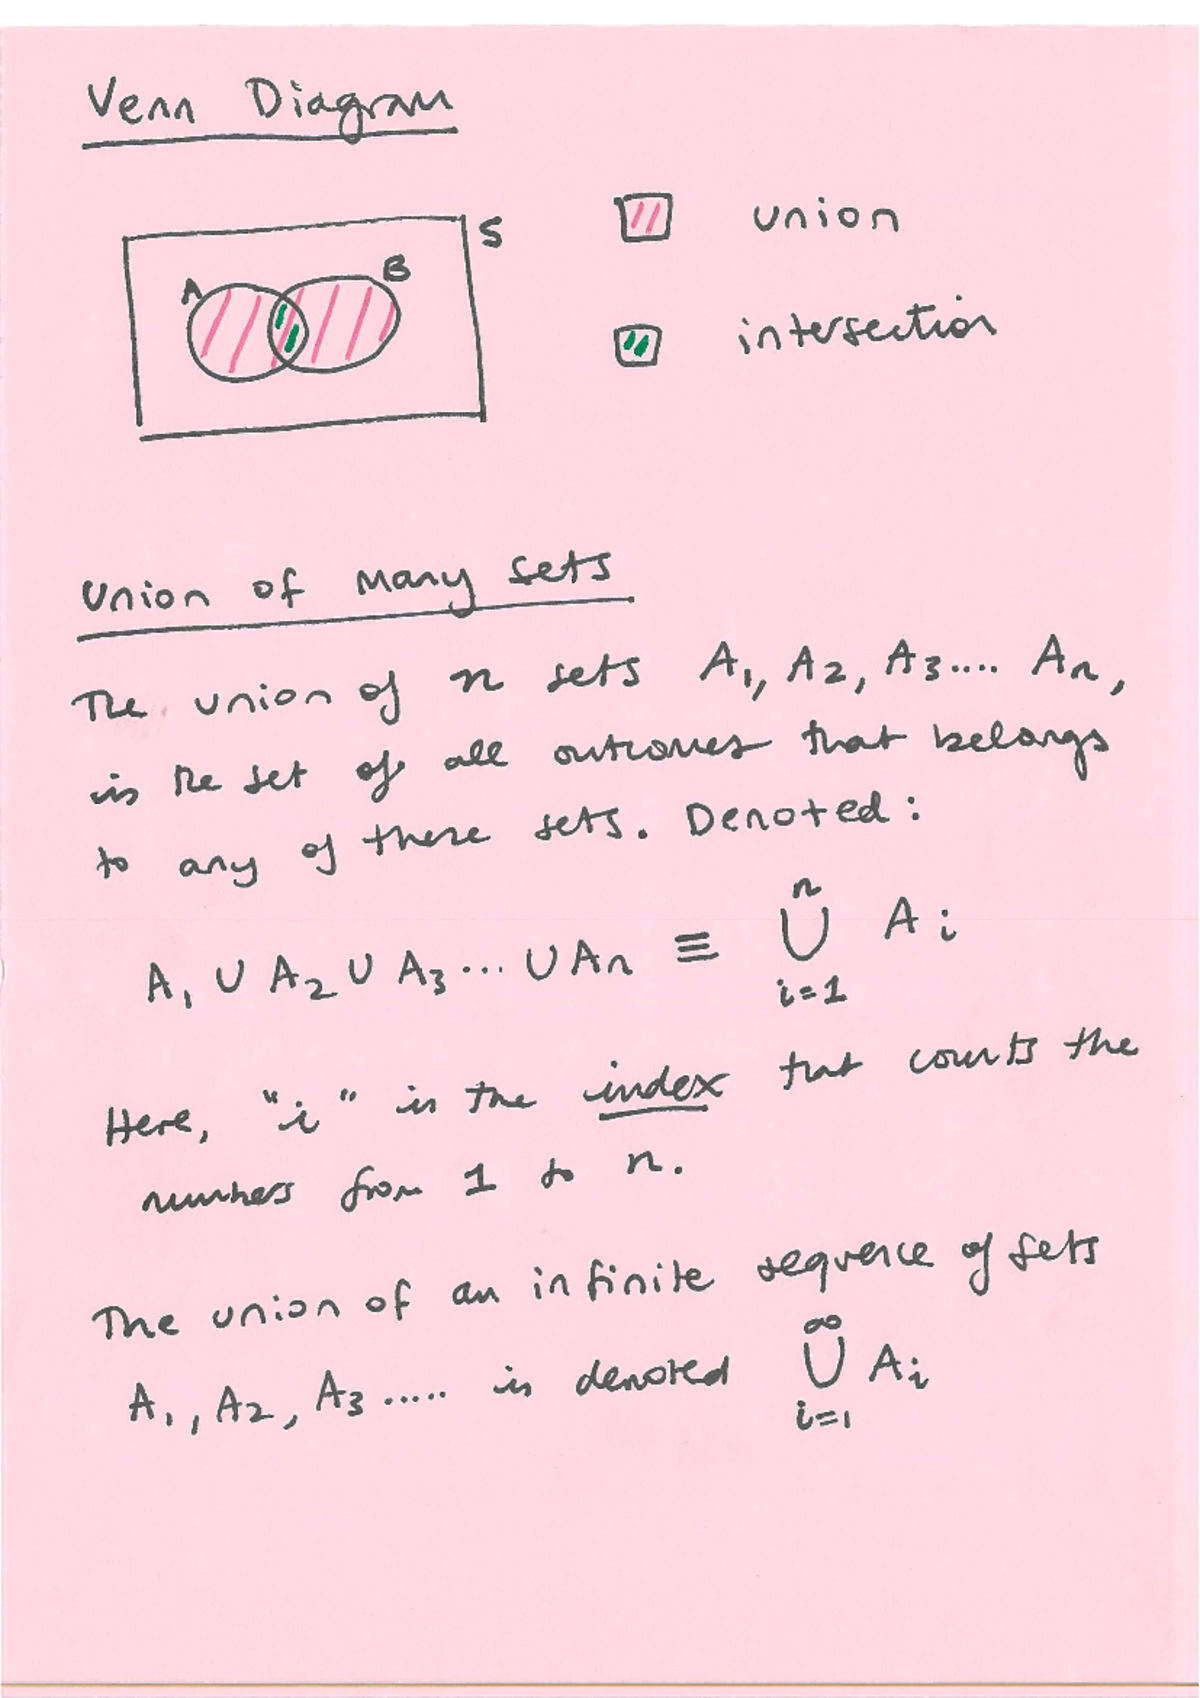 Venn Diagram
S
A B
union
intersection
Union of many sets
The union of n sets A₁, A₂, A₃.... Aₙ,
is the set of all outcomes that belongs
to any of these sets. Denoted:
n
A₁ ∪ A₂ ∪ A₃ ... ∪ Aₙ ≡ ∪ Aᵢ
i=1
Here, "i" is the index that counts the
numbers from 1 to n.
The union of an infinite sequence of sets
∞
A₁, A₂, A₃ ..... is denoted ∪ Aᵢ
i=1